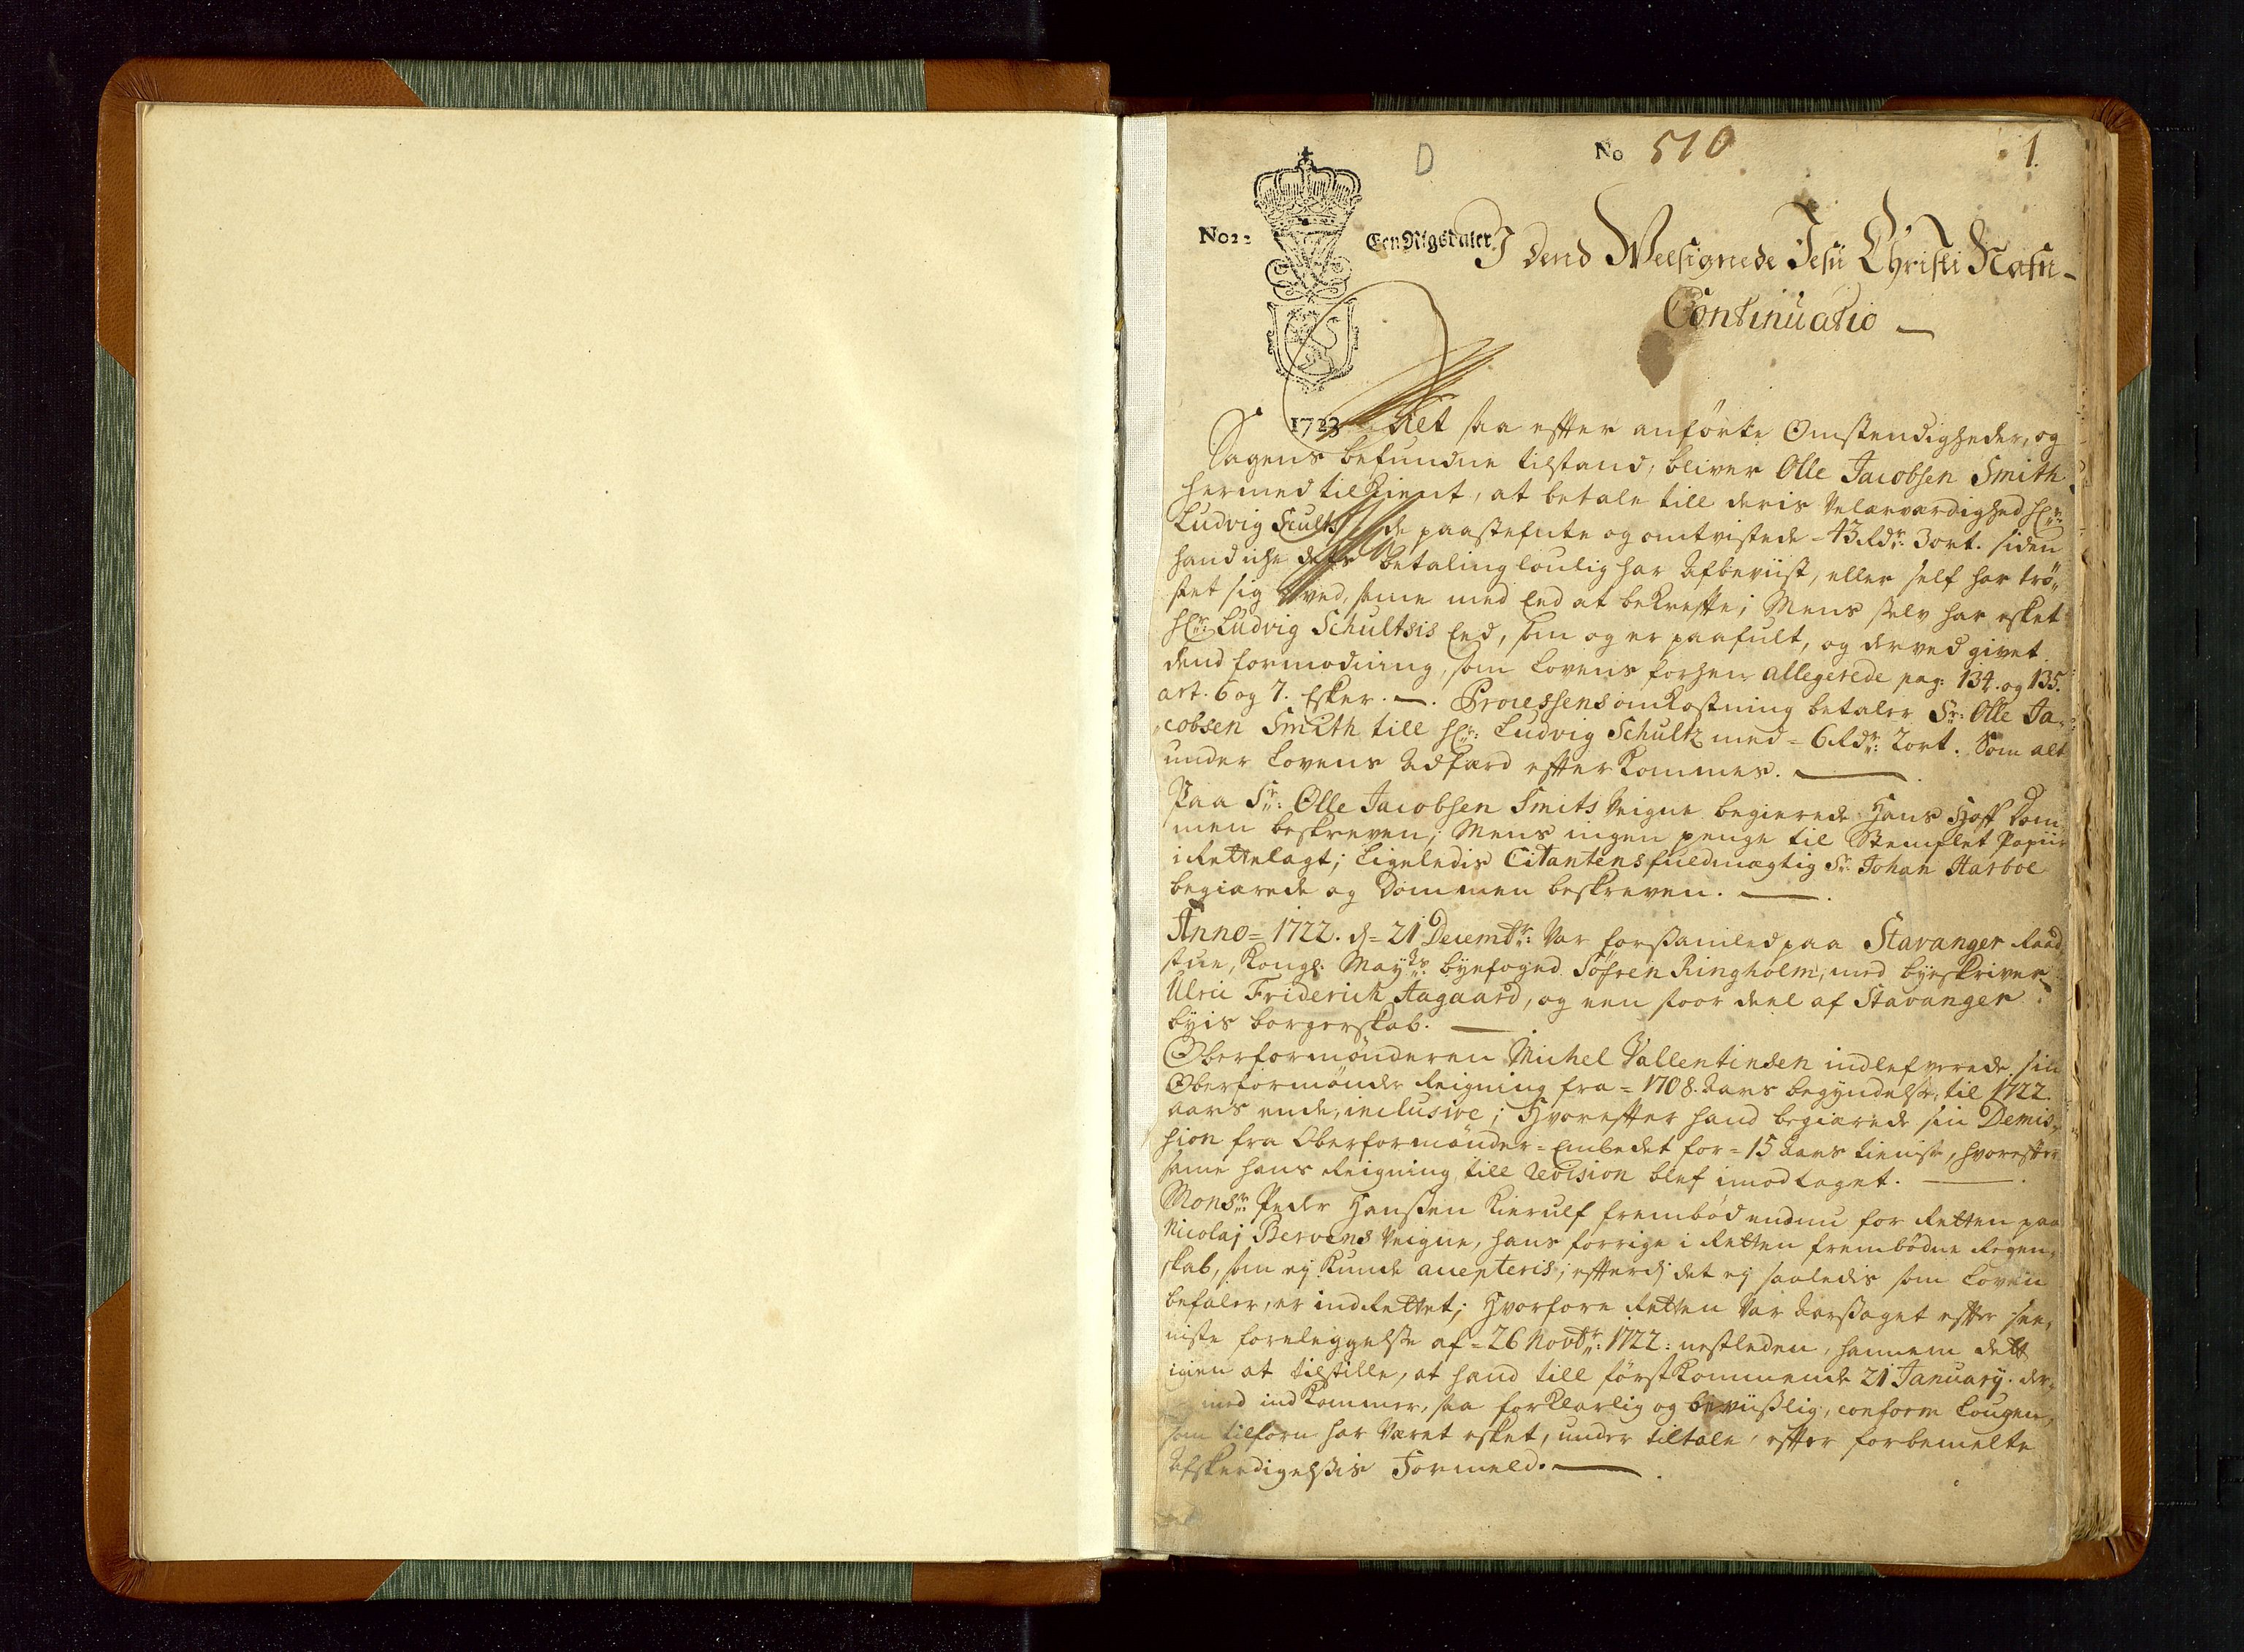 D
No 510
1.
No 22
Een Rigsdaler
I dend Welsignede Jesu Christi Nafn
Continuatio
1723
Alt saa efter anførte Omstendigheder, og
Sagens befundne tilstand, bliver Olle Jacobsen Smith
hermed tilkient, at betale till deris Velærværdighed Hr:
Ludvig Scultz de paastefnte og omtvistede - 43 Rdr: 3 ort. siden
hand iche dets betaling loulig har Afbeviist, eller self har trø„
stet sig ved, same med Eed at bekrefte; Mens selv har esket
Hr: Ludvig Schultsis Eed, som og er paafult, og derved givet
dend formodning, som Lovens forhen allegerede pag: 134. og 135.
art. 6 og 7. Esker. —. Processens omkostning betaler Sr: Olle Ja„
„cobsen Smith till Hr: Ludvig Schultz med = 6 Rdr: 2 ort. Som alt
under Lovens Adfærd efterkommes. —
Paa Sr: Olle Jacobsen Smits Veigne begierede Hans Hoff Dom„
men beskreven; Mens ingen penge til Stemplet Papiir
i Rettelagt; Ligeledis Citantens fuldmægtig Sr: Johan Harboe
begiærede og Dommen beskreven. —.
Anno = 1722. d = 21 Decembr: Var forsamled paa Stavanger Raad„
stue, Kongl: Mayts: byefoged Søfren Ringholm, med byeskriver
Ulric Friderich Aagaard, og een stoor deel af Stavanger
byis borgerskab. —
Oberformønderen Michel Vallentinsen indlefverede sin
Oberformønder Reigning fra = 1708. Aars begyndelse, til 1722.
aars ende, inclusive; Hvorefter hand begiærede sin Demis„
sion fra Oberformønder = Embedet for = 15 Aars tieniste, hvorefter
same hans Reigning till Revision blef imodtaget. —.
Monsr: Peder Hanssen Kierulf frembød endnu for Retten paa
Nicolaj Bervens Veigne, hans forrige i Retten frembødne Regen„
skab, som ej kunde accepteris; efterdj det ej saaledis som Loven
befaler, er indRettet; Hvorfore Retten Var Aarsaget efter see„
niste foreleggelse af = 26 Novbr: 1722: nestleden, hannem dett
igien at tilstille, at hand till førstkommende 21 January. der„
med indkommer, saa forklarlig og beviislig, conform Lougen,
som tilforn har Været esket, under tiltale, efter forbemelte
Afskeedigelsis Formeld. —.